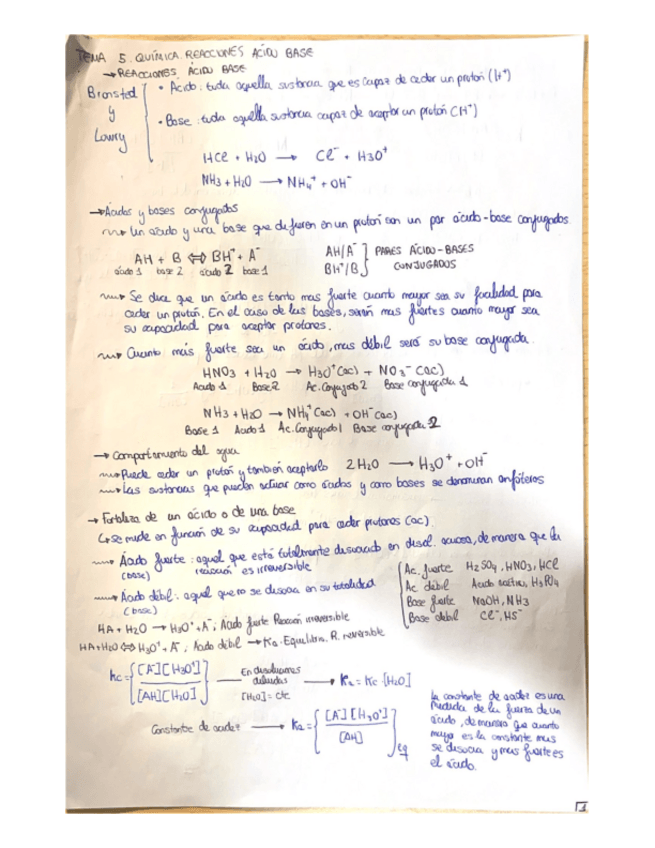 TEMA 5. QUÍMICA. REACCIONES ÁCIDO BASE
→ REACCIONES ÁCIDO BASE
Bronsted y Lowry
• Ácido: toda aquella sustancia que es capaz de ceder un protón (H⁺)
• Base: toda aquella sustancia capaz de aceptar un protón (H⁺)
HCl + H2O → Cl⁻ + H3O⁺
NH3 + H2O → NH4⁺ + OH⁻
→ Ácidos y bases conjugados
Un ácido y una base que difieren en un protón son un par ácido-base conjugados.
AH + B ⇔ BH⁺ + A⁻
ácido 1 base 2 ácido 2 base 1
AH/A⁻
BH⁺/B
PARES ÁCIDO-BASES
CONJUGADOS
Se dice que un ácido es tanto mas fuerte cuanto mayor sea su facilidad para
ceder un protón. En el caso de las bases, serán mas fuertes cuanto mayor sea
su capacidad para aceptar protones.
Cuanto más fuerte sea un ácido, mas débil será su base conjugada.
HNO3 + H2O → H3O⁺(ac) + NO3⁻(ac)
Acido 1 Base 2 Ac. Conjugado 2 Base conjugada 1
NH3 + H2O → NH4⁺(ac) + OH⁻(ac)
Base 1 Acido 1 Ac. Conjugado 1 Base conjugada 2
→ Comportamiento del agua
Puede ceder un protón y también aceptarlo 2H2O → H3O⁺ + OH⁻
Las sustancias que pueden actuar como ácidos y como bases se denominan anfóteros
→ Fortaleza de un ácido o de una base
↳ se mide en función de su capacidad para ceder protones (ac)
Ácido fuerte: aquel que está totalmente disociado en disol. acuosa, de manera que la
(base) reacción es irreversible
Ácido débil: aquel que no se disocia en su totalidad
(base)
Ac. fuerte H2SO4, HNO3, HCl
Ac debil Acido H3PO4
Base fuerte NaOH, NH3
Base debil Cl⁻, HS⁻
HA + H2O → H3O⁺ + A⁻; Ácido fuerte Reacción irreversible
HA + H2O ⇔ H3O⁺ + A⁻; Ácido débil → Ka. Equilibrio. R. reversible
Kc = {[A⁻][H3O⁺] / [AH][H2O]} En disoluciones diluidas [H2O] = cte → Ka = Kc · [H2O]
Constante de acidez → Ka = {[A⁻][H3O⁺] / [AH]}eq
La constante de acidez es una
medida de la fuerza de un
ácido, de manera que cuanto
mayo es la constante mas
se disocia y mas fuerte es
el ácido.
1